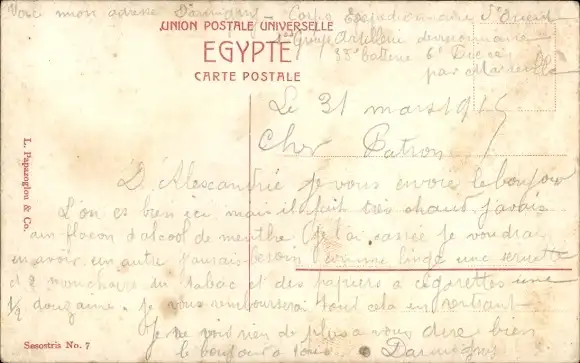 Voici mon adresse Darmigny Corps Expéditionnaire d'Orient
1er Groupe Artillerie
33e batterie 6e
par Marseille
UNION POSTALE UNIVERSELLE
EGYPTE
CARTE POSTALE
Le 31 mars 1915
Cher Patron
D'Alexandrie je vous envoie le bonjour
L'on es bien ici mais il fait très chaud j'avais
un flacon d'alcool de menthe je l'ai cassée je voudrai
en avoir un autre j'aurais besoin comme linge une serviette
et 2 mouchoirs du tabac et des papiers a cigarettes une
1/2 douzaine. je vous rembourserai tout cela en rentrant
Je ne vois rien de plus a vous dire bien
le bonjour a tous. Darmigny
L. Papazoglou & Co.
Sesostris No. 7